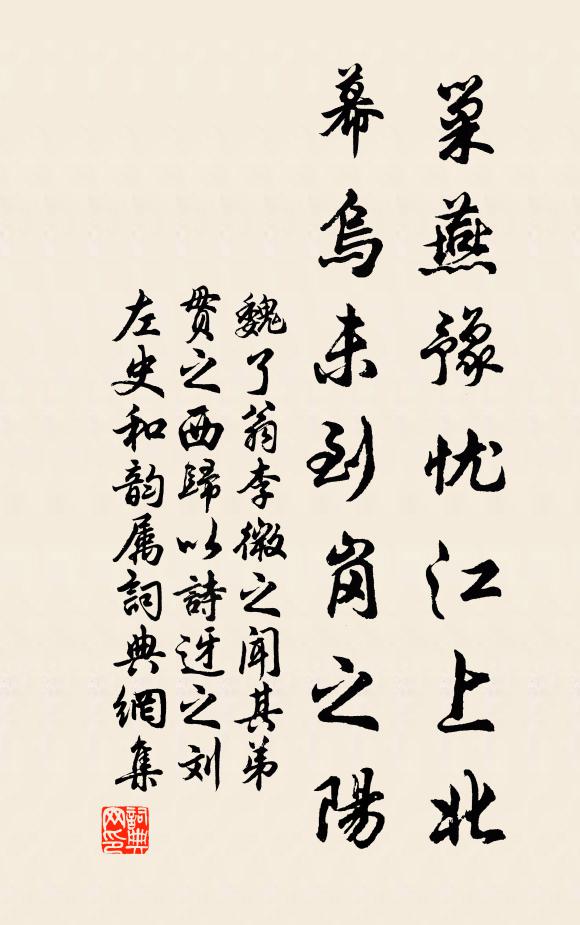 巢燕豫忧江上北
幕烏未到岗之陽
魏了翁李微之闻其弟
贯之西歸以詩迓之刘
左史和韵属詞典網集
詞典
网印